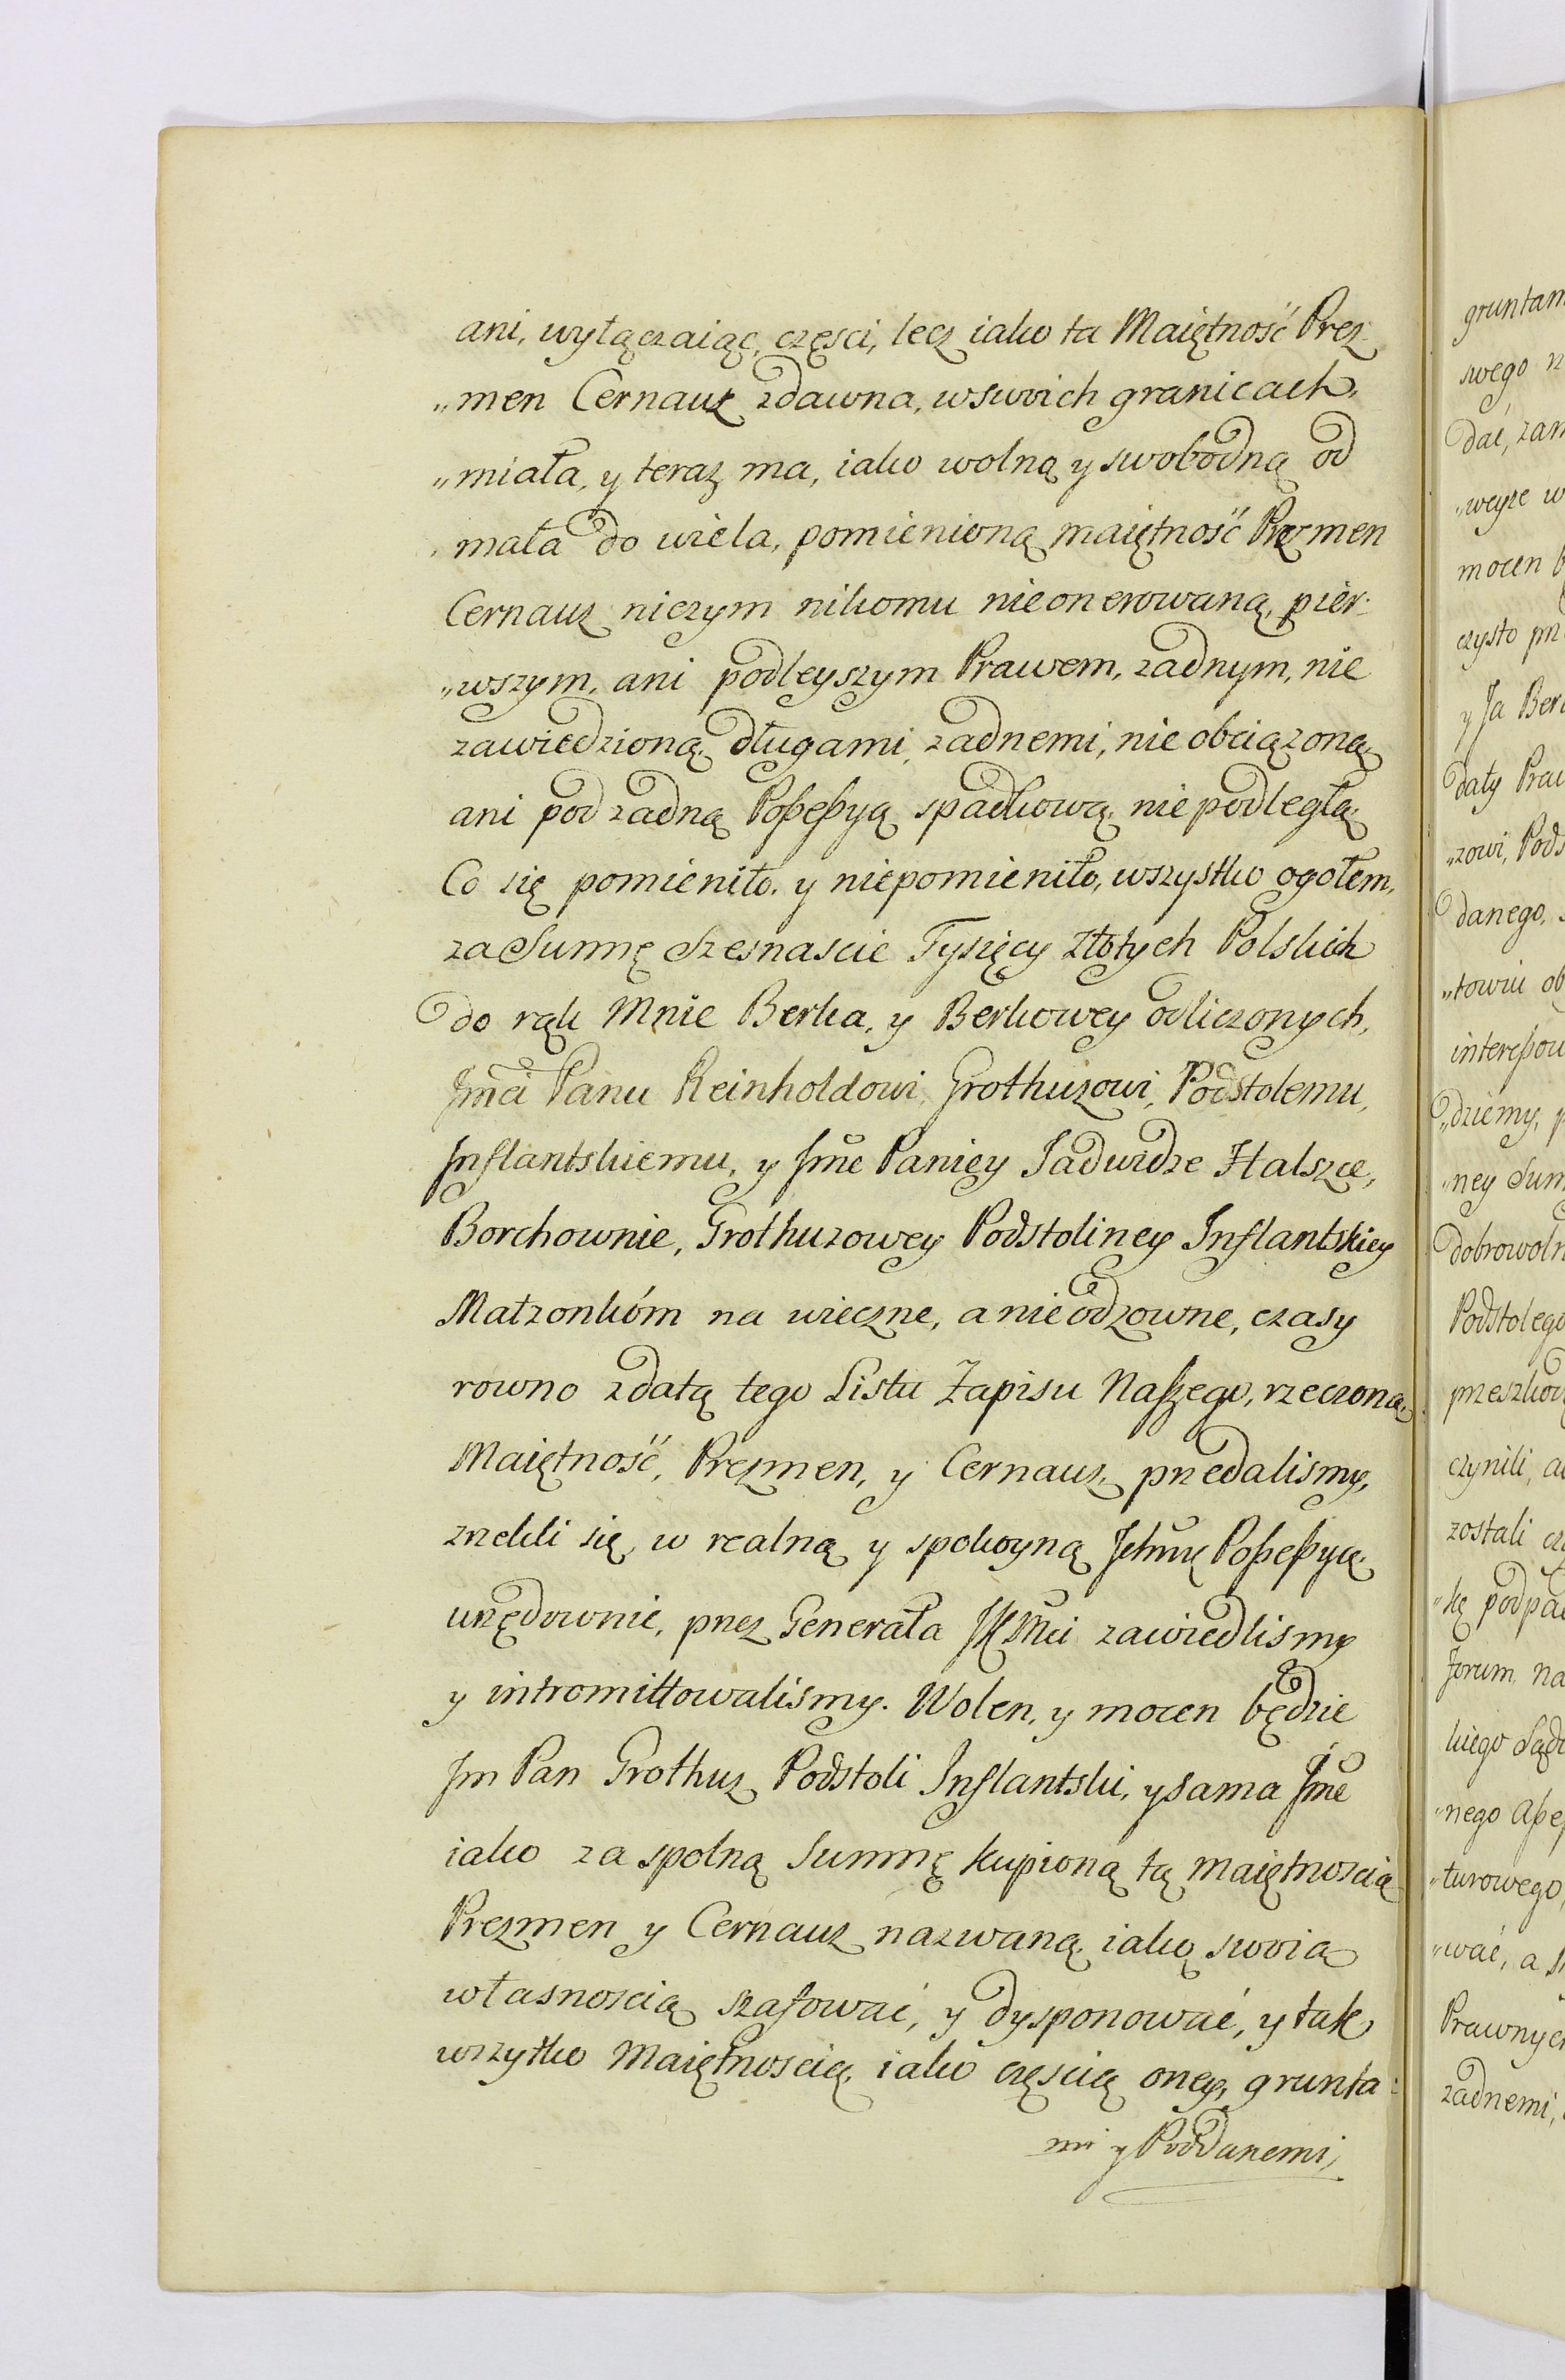 ani, wyłączaiąc, częsci, lecz iako ta Maiętność Prez
„men Cernauz zdawna, wswoich granicach,
„miała, y teraz ma, iako wolną y swobodną od
mała do wiela, pomienioną maiętność Prezmen
Cernauz niczym nikomu nieonerowaną, pier:
„wszym, ani podleyszym Prawem, zadnym, nie
zawiedzioną, długami, zadnemi, nie obciązoną,
ani pod zadną Poßeßyą spadkową, nie podległą,
Co się pomieniło, y niepomieniło, wszystko ogołem,
za Summę Szesnascie Tysięcy Złotych Polskich
do rąk Mnie Berka, y Berkowey odliczonych,
Jmci Panu Reinholdowi, Grothuzowi, Podstolemu,
Inflantskiemu, y Jme Paniey Jadwidze Halszce,
Borchownie, Grothuzowey Podstoliney Inflantskiey
Małzonkóm na wieczne, a nie odzowne, czasy
rowno z datą tego Listu Zapisu Naszego, rzeczoną,
Maiętność, Prezmen, y Cernauz, przedalismy,
zrzekli się, w realną y spokoyną Ichmę Poßeßyą,
urzędownie, przez Generała JKMci zawiedlismy
y intromittowalismy. Wolen, y mocen będzie
Jm Pan Grothuz Podstoli Inflantski, y sama Jme
iako za spolną Summę kupioną tą maiętnoscią
Prezmen y Cernauz nazwaną, iako swoią
własnoscią szafować, y dysponować, y tak
wszytko Maiętnoscią, iako częscią oney, grunta:
mi y Poddanemi,
gruntam
swego n
dać, zam
„weyze w
mocen b
czysto prz
y Ja Ber
daty Praw
„zowi, Pods
danego,
„towiu ob
intereßow
„dziemy, p
„ney Sum
dobrowoln
Podstolego
przeszkod
czynili, a
zostali
„kę podpa
Forum, na
kiego Sądo
„nego Aßeß
„turowego,
„wać, a
Prawnych
zadnemi,